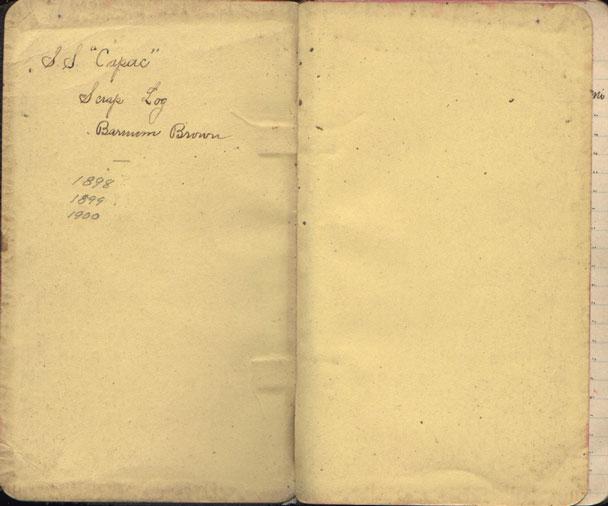 S.S. "Capac"
Scrap Log
Barnum Brown
1898
1899
1900